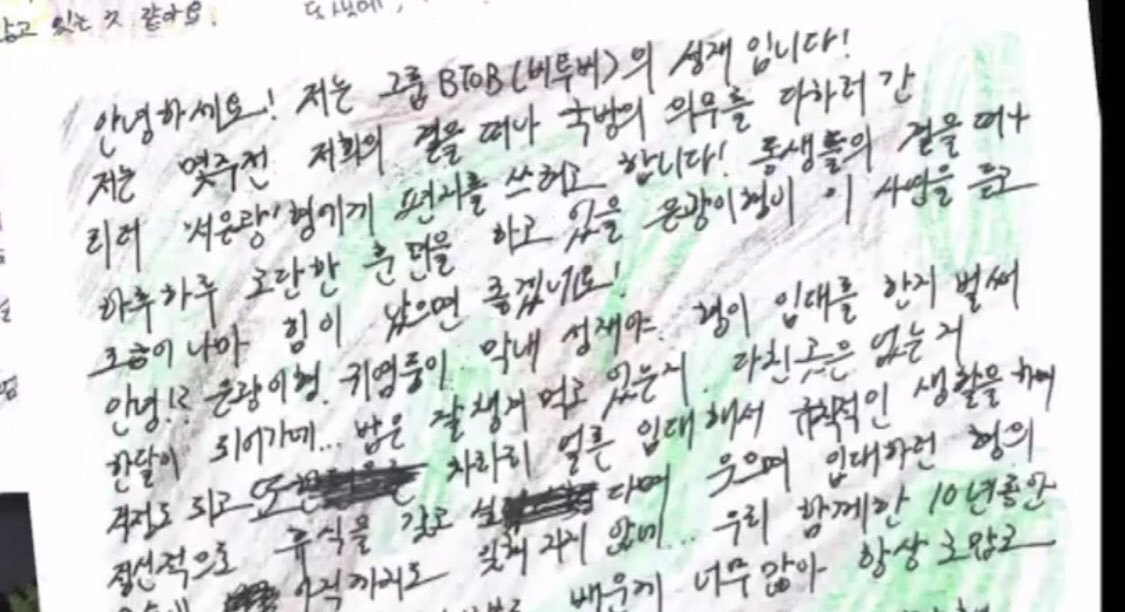 않고 있는 것 같아요.
안녕하세요! 저는 그룹 BToB(비투비)의 성재 입니다!
저는 몇주전 저희의 곁을 떠나 국방의 의무를 다하러 간
리더 '서은광' 형에게 편지를 쓰려고 합니다! 동생들의 곁을 떠나
하루하루 고단한 훈련을 하고 있을 은광이형이 이 사연을 듣고
조금이나마 힘이 났으면 좋겠네요!
안녕!? 은광이형. 귀염둥이 막내 성재야. 형이 입대를 한지 벌써
한달이 되어가네... 밥은 잘 챙겨 먹고 있는지. 다친 곳은 없는지
걱정도 되고 차라리 얼른 입대해서 규칙적인 생활을 하며
정신적으로 휴식을 갖고 다며 웃으며 입대하던 형의
아직까지도 잊혀지지 않네... 우리 함께한 10년동안
배운게 너무 많아 항상 고맙고